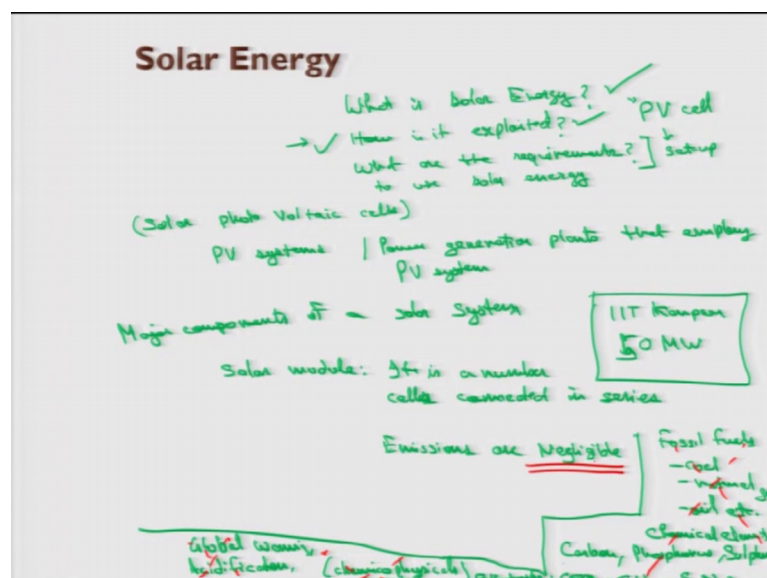 Solar Energy
What is Solar Energy?
PV cell
How is it exploited?
What are the requirements?
set-up
to use solar energy
(Solar photo voltaic cells)
PV systems / Power generation plants that employ
PV system
Major components of a solar System
IIT Kanpur
50 MW
Solar module: It is a number
cells connected in series
Emissions are Negligible
Fossil fuels
-coal
-natural
-oil etc.
Chemical
Global
Carbon, Phosphorus,
Acidification, (chemicophysical)